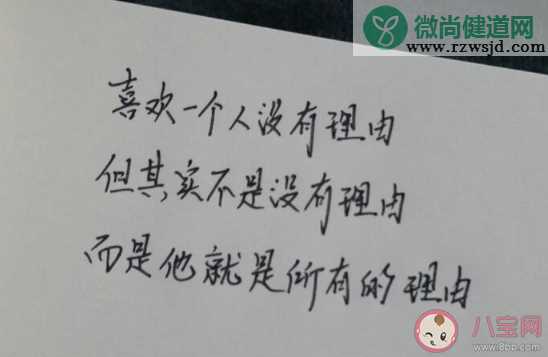 微尚健道网
www.rzwsjd.com
喜欢一个人没有理由
但其实不是没有理由
而是他就是所有的理由
八宝网
www.8bb.com